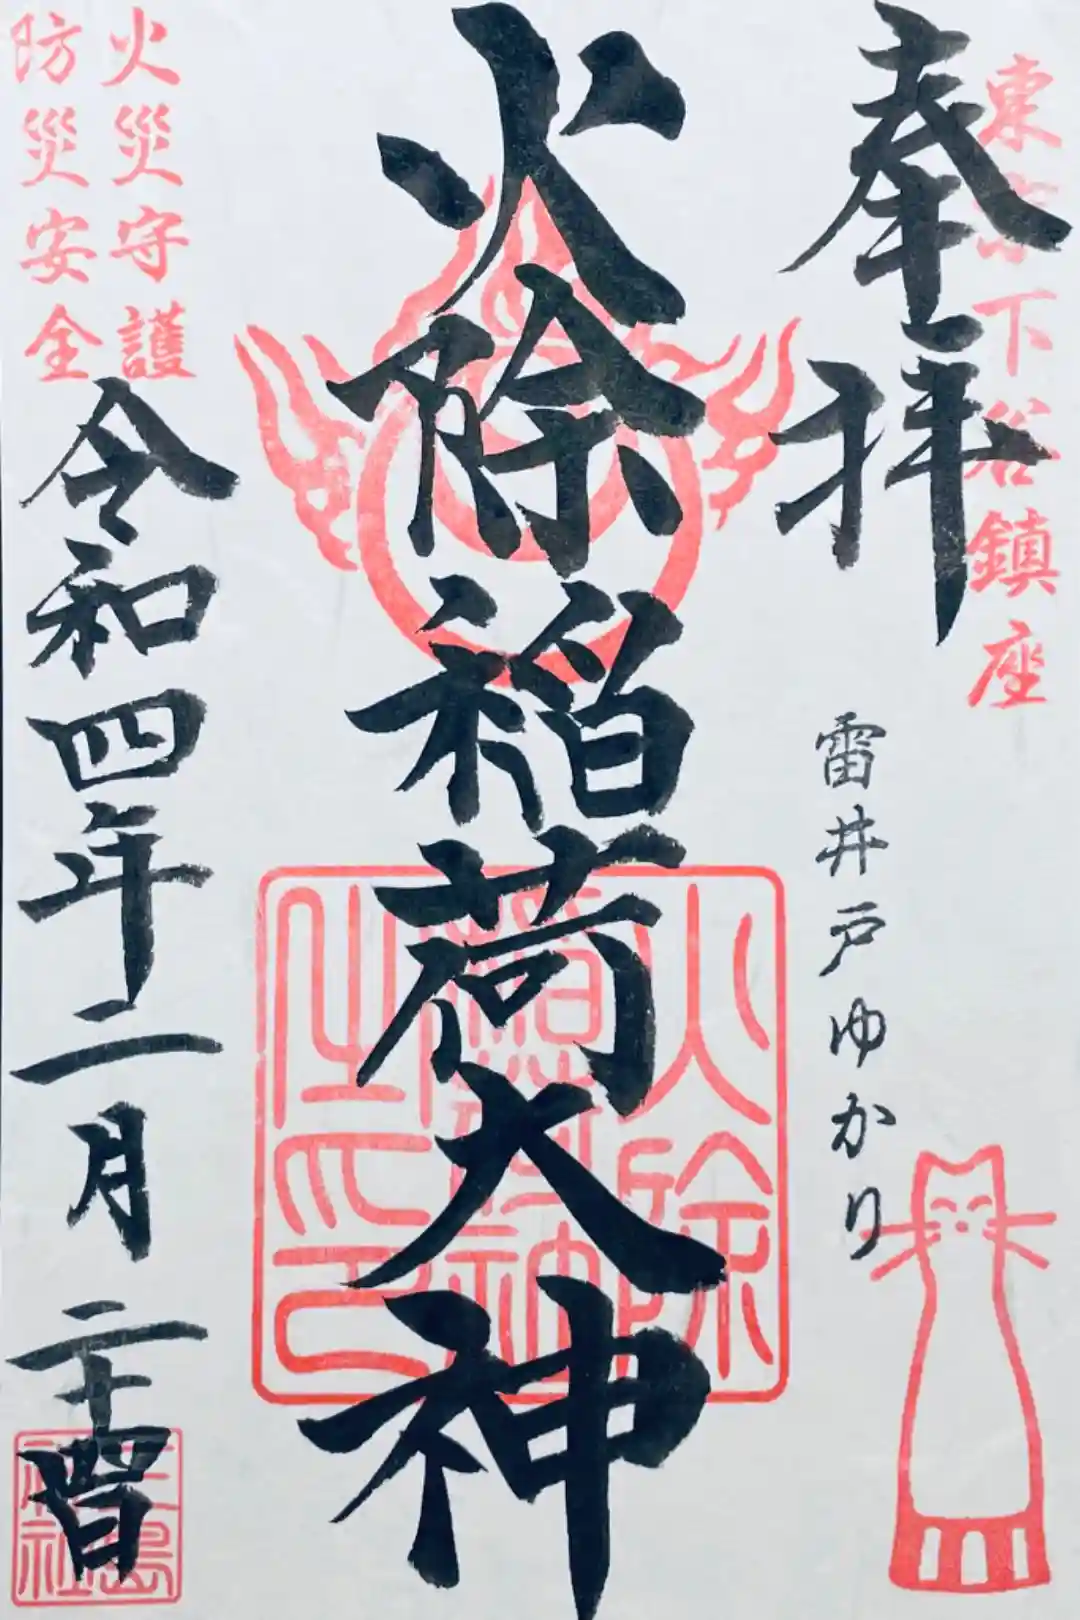 東京下谷鎮座
奉拝
雷井戸ゆかり
火除稲荷大神
火除
之印
火災守護
防災安全
令和四年二月二十四日
三島
神社